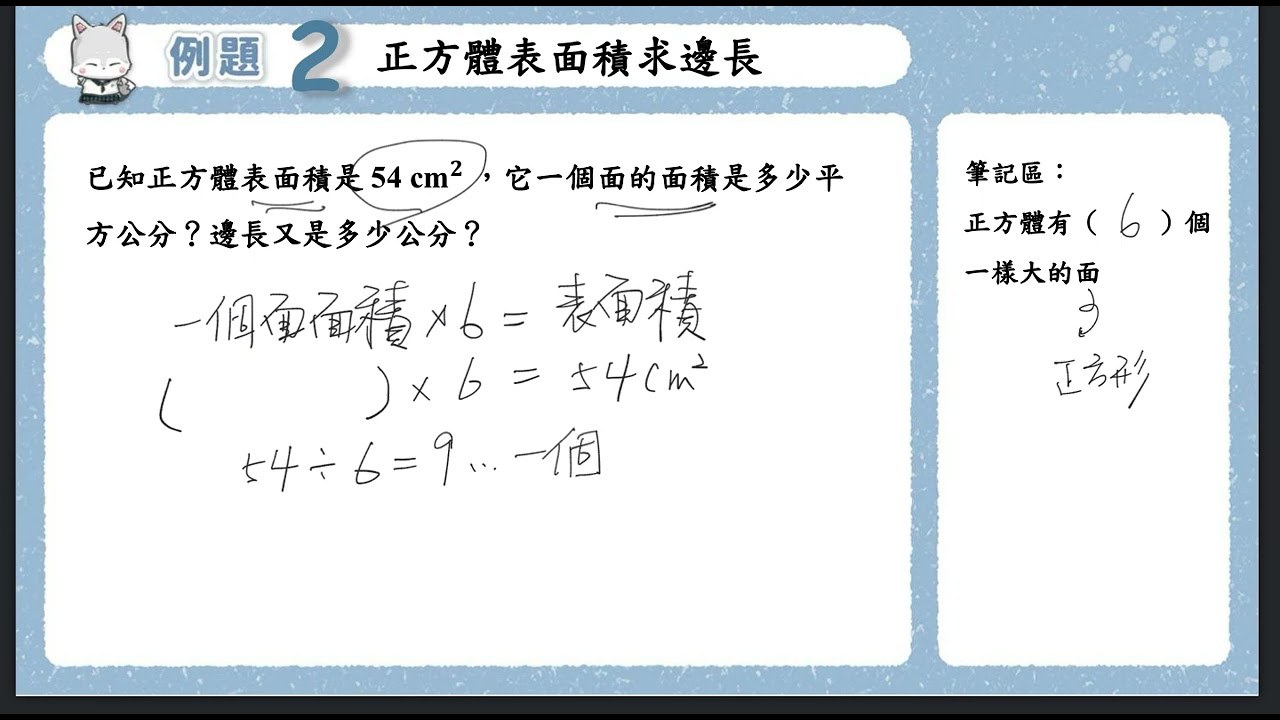 例題 2 正方體表面積求邊長
已知正方體表面積是 54 cm²，它一個面的面積是多少平
方公分？邊長又是多少公分？
一個面面積 × 6 = 表面積
(          ) × 6 = 54 cm²
54 ÷ 6 = 9 … 一個
筆記區：
正方體有（ 6 ）個
一樣大的面
正方形